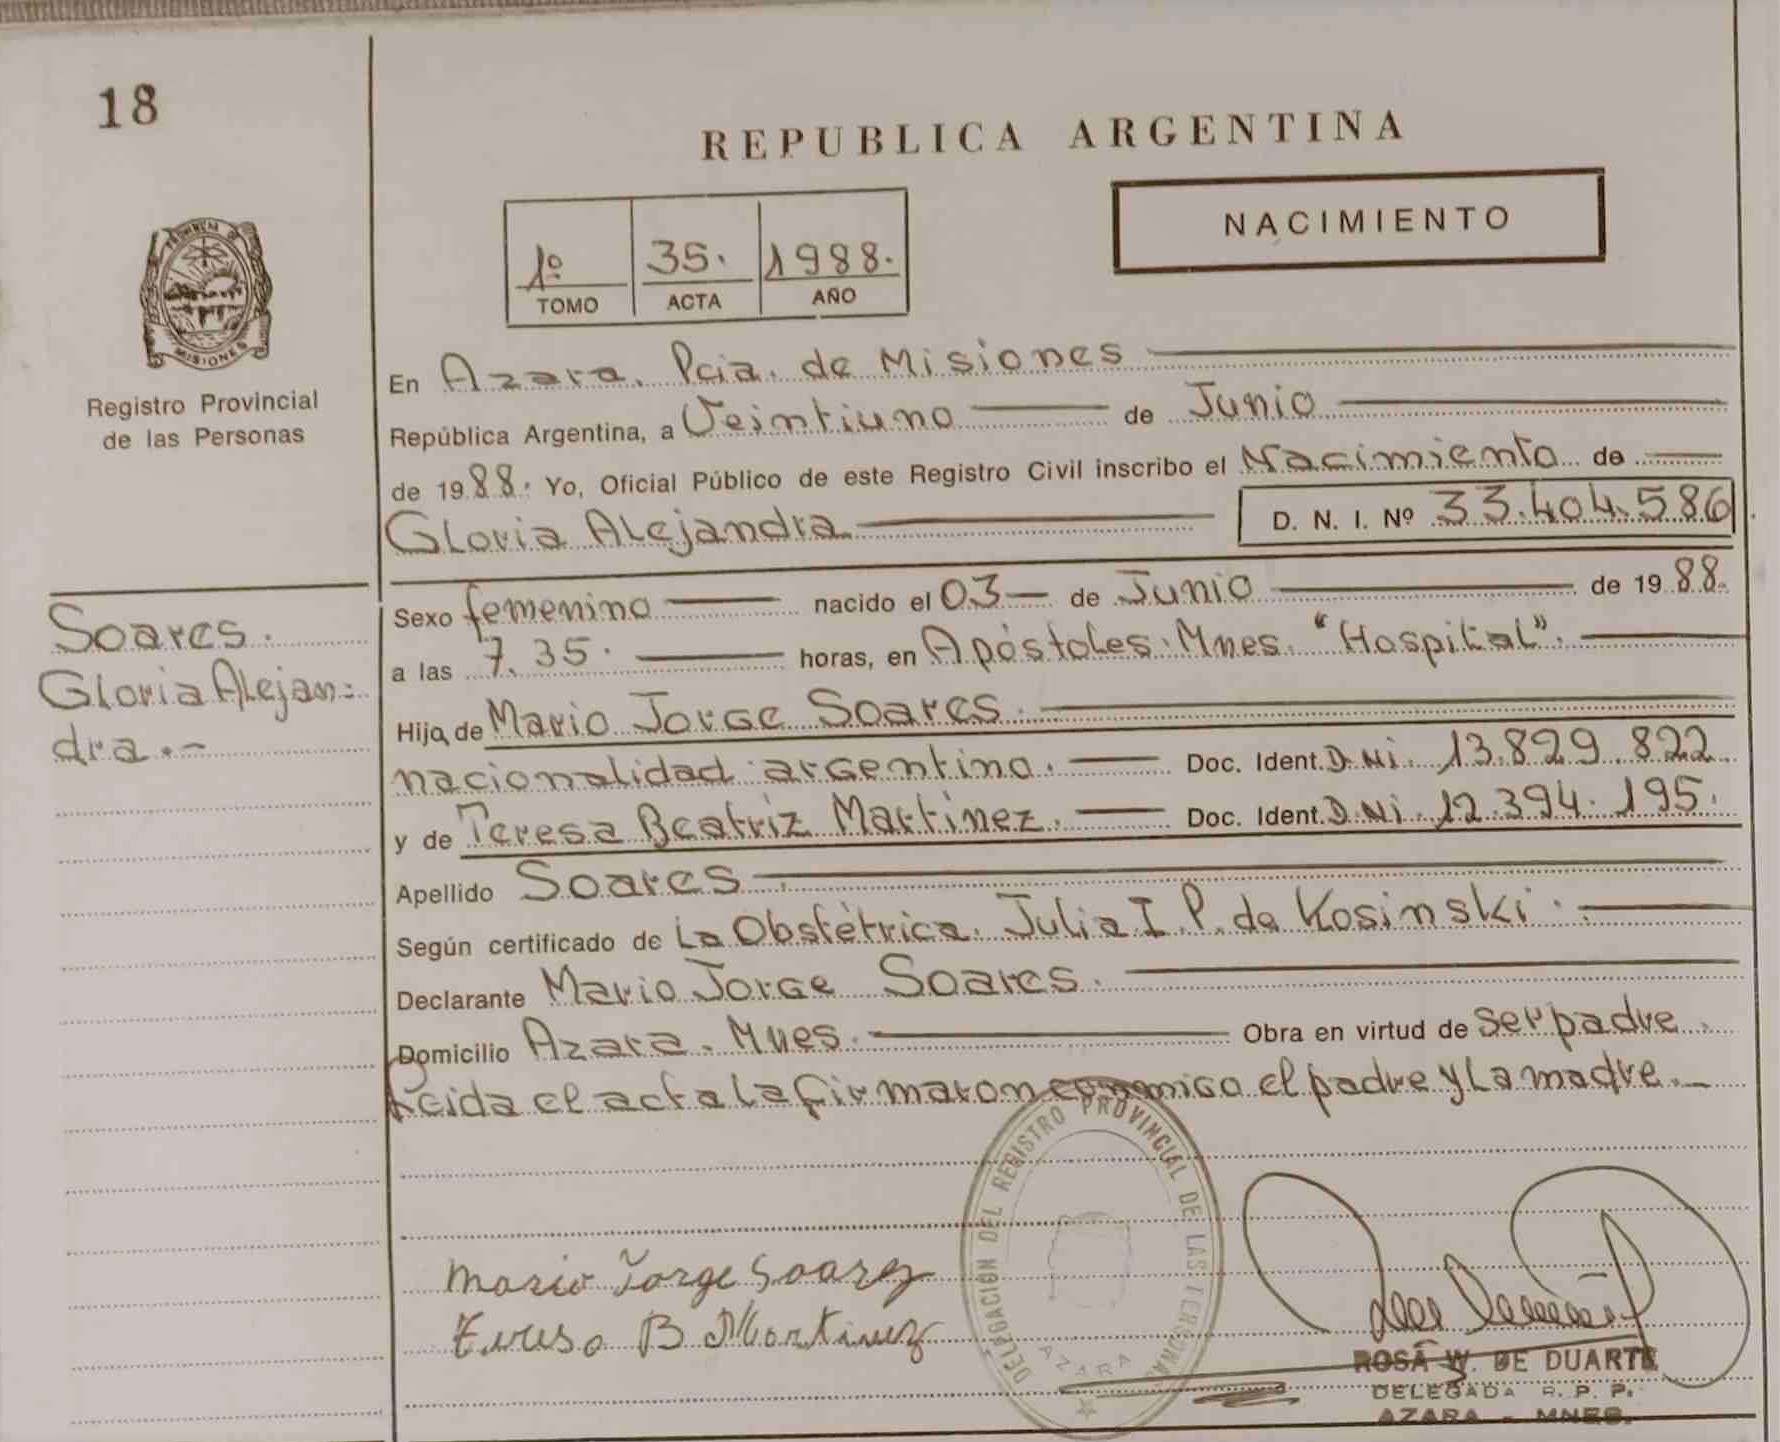 18
REPUBLICA ARGENTINA
NACIMIENTO
1º 35. 1988.
TOMO ACTA AÑO
PROVINCIA DE
MISIONES
Registro Provincial
de las Personas
En Azara. Pcia. de Misiones
República Argentina, a Veintiuno de Junio
de 1988. Yo, Oficial Público de este Registro Civil inscribo el Nacimiento de
Gloria Alejandra D. N. I. Nº 33.404.586
Soares.
Gloria Alejan=
dra.-
Sexo femenino nacido el 03 de Junio de 1988.
a las 7.35. horas, en Apóstoles. Mnes. "Hospital".
Hija de Mario Jorge Soares.
nacionalidad argentino. Doc. Ident. D.Ni. 13.829.822
y de Teresa Beatriz Martinez. Doc. Ident. D.Ni. 12.394.195.
Apellido Soares
Según certificado de La Obstétrica. Julia I. P. de Kosinski.
Declarante Mario Jorge Soares.
Domicilio Azara. Mnes. Obra en virtud de ser padre.
Leida el acta la firmaron conmigo el padre y la madre.
DELEGACION DEL REGISTRO PROVINCIAL DE LAS PERSONAS
AZARA
Mario Jorge Soarez
Teresa B Martinez
ROSA W. DE DUARTE
DELEGADA R. P. P.
AZARA - MNES.